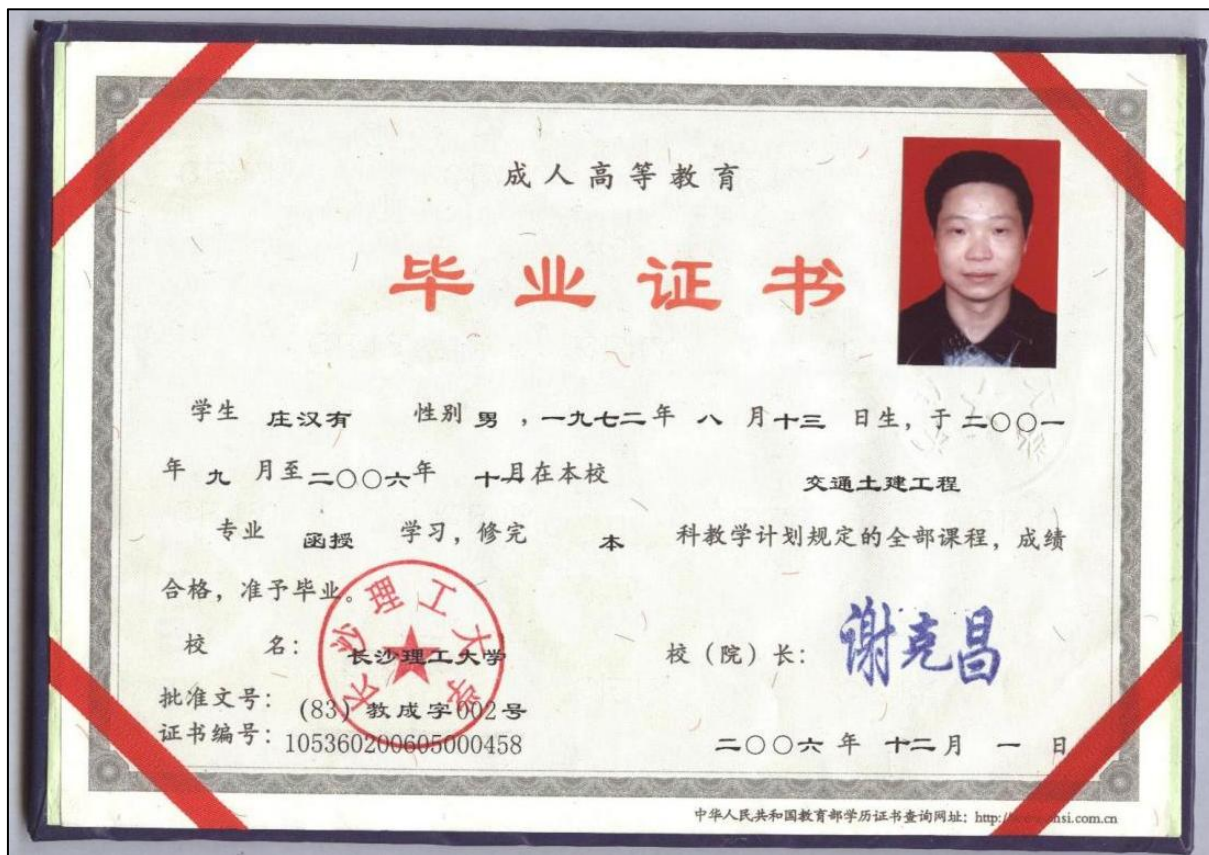 成人高等教育
毕业证书
学生 庄汉有 性别 男 ，一九七二年 八 月十三 日生，于二〇〇一
年 九 月至二〇〇六年 十月在本校 交通土建工程
专业 函授 学习，修完 本 科教学计划规定的全部课程，成绩
合格，准予毕业。
长沙理工大学
校 名： 长沙理工大学 校（院）长： 谢克昌
批准文号： (83) 教成字002号
证书编号：105360200605000458 二〇〇六 年 十二月 一 日
中华人民共和国教育部学历证书查询网址：http:// hsi.com.cn